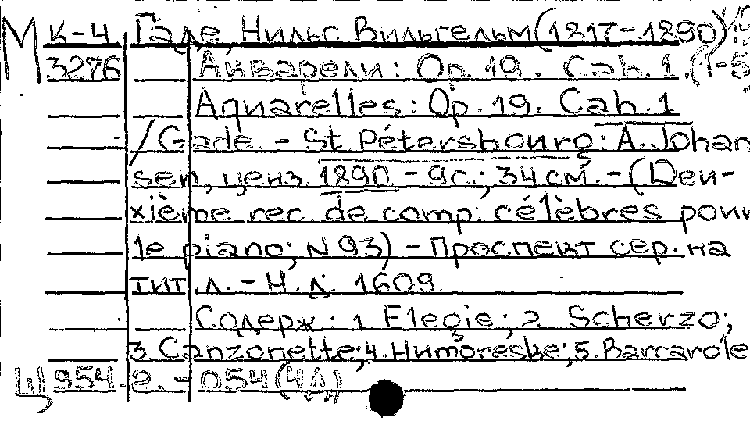 М К-4 Гаде, Нильс Вильгельм (1817-1890)
3276 Акварели: Op. 19. Cah. 1. (1-5
Aquarelles: Op. 19. Cah. 1
/Gade. - St. Pétersbourg: A. Johan
sen, ценз. 1890. - 9с.; 34 см. - (Deu-
xième rec. de comp. célèbres pour
le piano; N 93) - Проспект сер. на
тит. л. - Н. д. 1609
Содерж.: 1. Elegie; 2. Scherzo;
3. Canzonette; 4. Humoreske; 5. Barcarole
Ц) 954-2. - 054 (4Д)